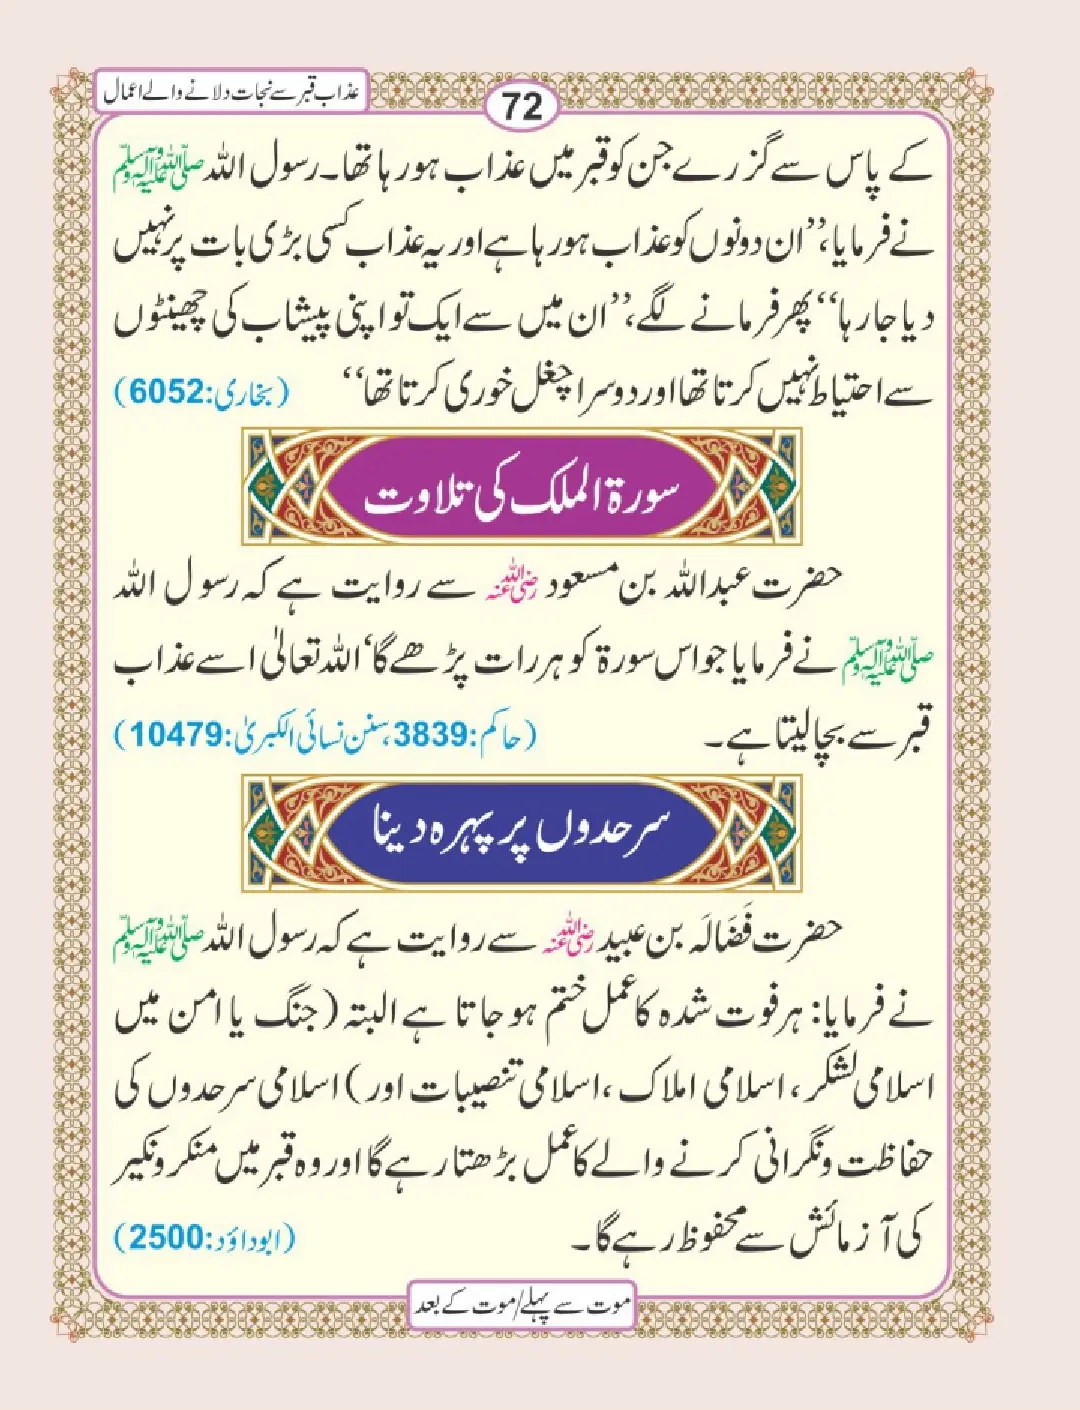 عذاب قبر سے نجات دلانے والے اعمال
72
کے پاس سے گزرے جن کو قبر میں عذاب ہو رہا تھا۔ رسول اللہ صلی اللہ علیہ وسلم
نے فرمایا، ’’ان دونوں کو عذاب ہو رہا ہے اور یہ عذاب کسی بڑی بات پر نہیں
دیا جا رہا‘‘ پھر فرمانے لگے، ’’ان میں سے ایک تو اپنی پیشاب کی چھینٹوں
سے احتیاط نہیں کرتا تھا اور دوسرا چغل خوری کرتا تھا‘‘ (بخاری:6052)
سورۃ الملک کی تلاوت
حضرت عبداللہ بن مسعود رضی اللہ عنہ سے روایت ہے کہ رسول اللہ
صلی اللہ علیہ وسلم نے فرمایا جو اس سورۃ کو ہر رات پڑھے گا‘ اللہ تعالیٰ اسے عذاب
قبر سے بچا لیتا ہے۔ (حاکم:3839، سنن نسائی الکبریٰ:10479)
سرحدوں پر پہرہ دینا
حضرت فَضَالَہ بن عبید رضی اللہ عنہ سے روایت ہے کہ رسول اللہ صلی اللہ علیہ وسلم
نے فرمایا: ہر فوت شدہ کا عمل ختم ہو جاتا ہے البتہ (جنگ یا امن میں
اسلامی لشکر، اسلامی املاک، اسلامی تنصیبات اور) اسلامی سرحدوں کی
حفاظت ونگرانی کرنے والے کا عمل بڑھتا رہے گا اور وہ قبر میں منکر ونکیر
کی آزمائش سے محفوظ رہے گا۔ (ابوداؤد:2500)
موت سے پہلے/موت کے بعد